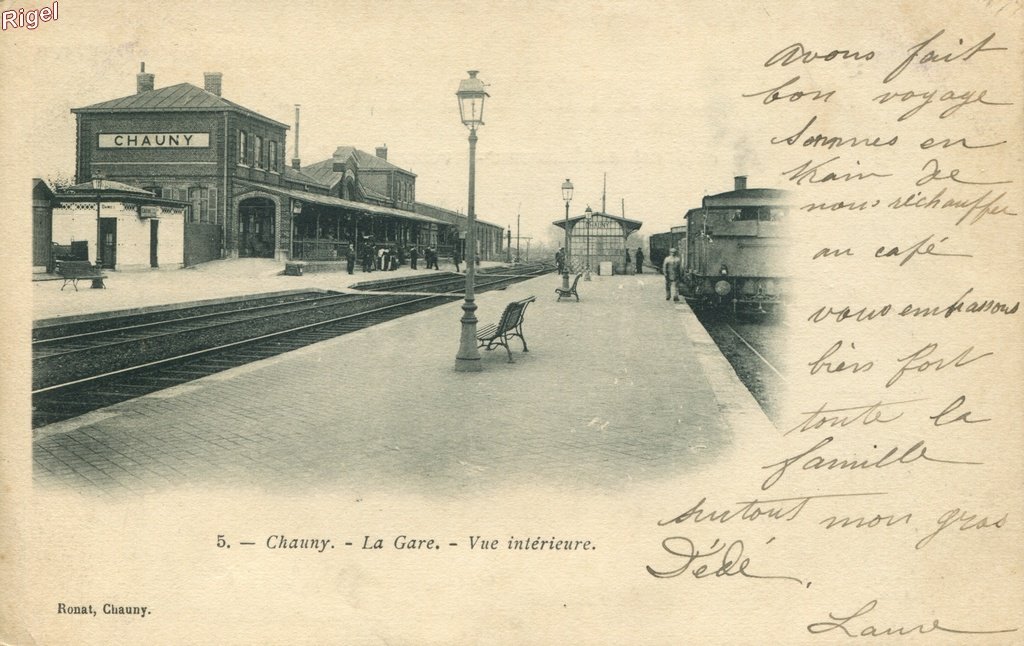 Rigel
CHAUNY
avons fait
bon voyage
Sommes en
train de
nous réchauffer
au café
vous embrassons
bien fort
toute la
famille
surtout mon gros
Dédé.
Laure
5. — Chauny. - La Gare. - Vue intérieure.
Ronat, Chauny.